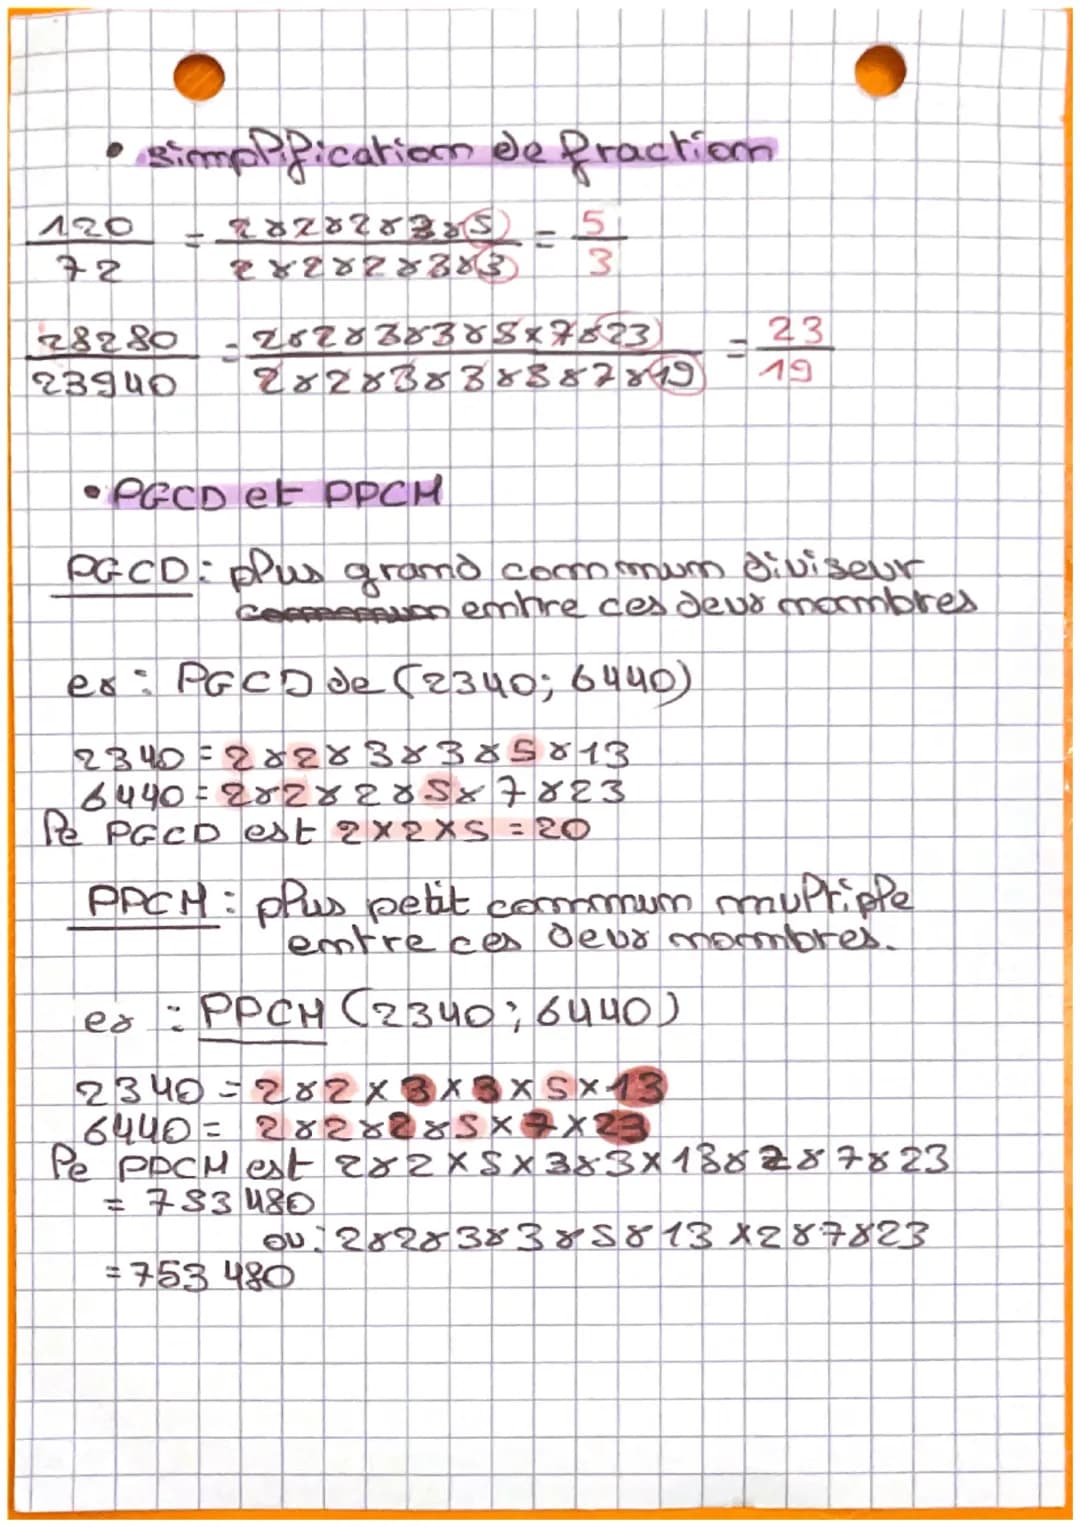 • simplification de fraction
120/72 = 2×2×2×3×5/2×2×2×3×3 = 5/3
28280/23940 = 2×2×3×3×5×7×23/2×2×3×3×5×7×19 = 23/19
• PGCD et PPCM
PGCD : plus grand commum diviseur
entre ces deux nombres
ex : PGCD de (2340; 6440)
2340 = 2×2×3×3×5×13
6440 = 2×2×2×5×7×23
le PGCD est 2×2×5 = 20
PPCM : plus petit commum multiple
entre ces deux nombres.
ex : PPCM (2340; 6440)
2340 = 2×2×3×3×5×13
6440 = 2×2×2×5×7×23
le PPCM est 2×2×5×3×3×13×2×7×23
= 753 480
ou : 2×2×3×3×5×13×2×7×23
= 753 480